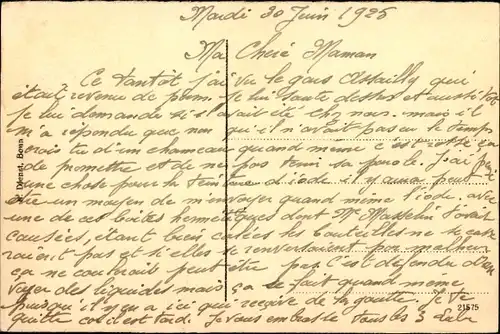 Mardi 30 Juin 1925
Ma Chère Maman
Ce tantôt j'ai vu le gars Assailly qui
était revenu de perm. Je lui saute dessus et aussitôt
je lui demande si il avait été chez nous. mais il
m'a répondu que non qu'il n'avait pas eu le temps
tu d'un chameau quand même c'est
de promettre et de ne pas tenir sa parole. J'ai
une chose pour la teinture d'iode il y aura peut
être un moyen de m'envoyer quand même l'iode avec
une de ces boites hermétiques dont Mr l'avait
causées, étant bien les bouteilles ne se
raient pas et si elles se renversaient par malheur
ça ne coulerait peut être pas. C'est défendu d'en
voyer des liquides mais ça se fait quand même
puisqu'il y en a ici qui reçoive de la goutte. Je te
quitte car il est tard. Je vous embrasse tous les 3
Dienst, Bonn
21575